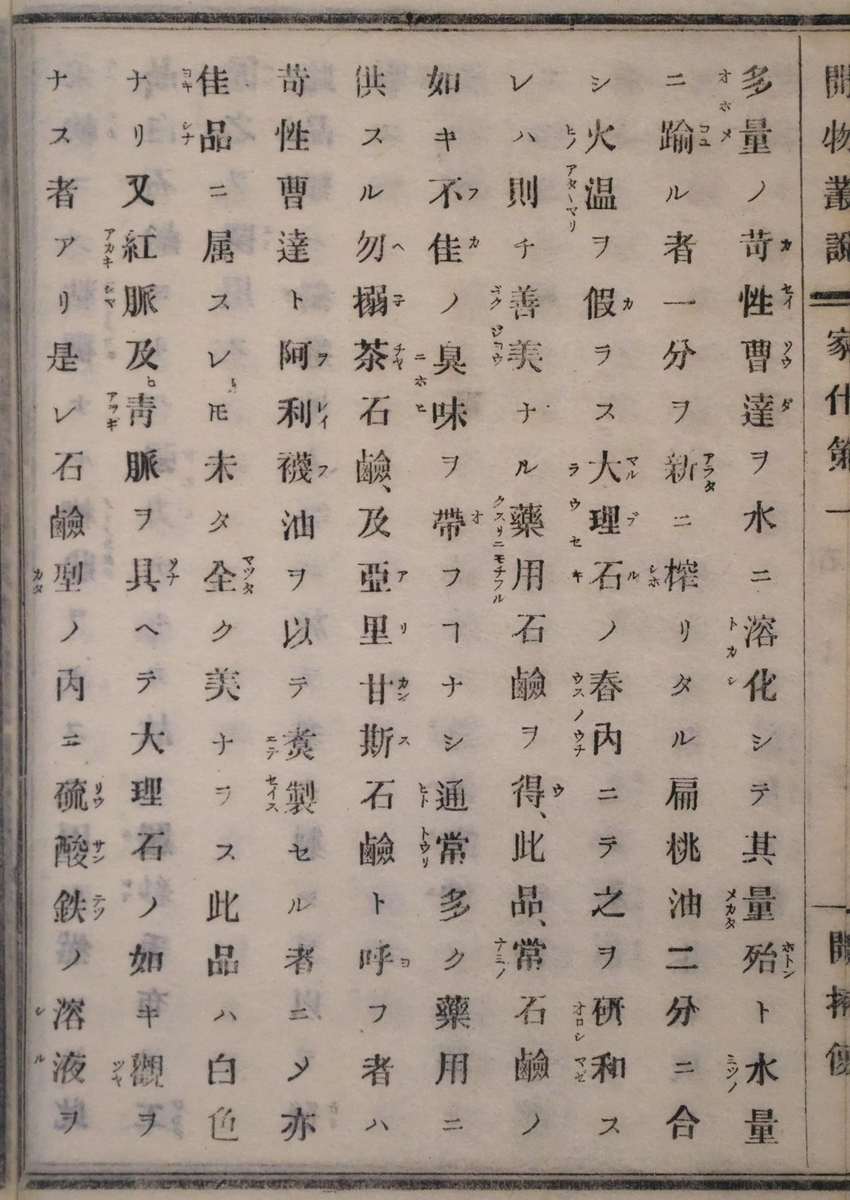 開物叢説 家什第一 開揥復
多量ノ苛性曹達ヲ水ニ溶化シテ其量殆ト水量
ニ踰ル者一分ヲ新ニ榨リタル扁桃油二分ニ合
シ火温ヲ假ラス大理石ノ舂内ニテ之ヲ研和ス
レハ則チ善美ナル藥用石鹼ヲ得、此品、常石鹼ノ
如キ不佳ノ臭味ヲ帶フヿナシ通常多ク藥用ニ
供スル勿搦茶石鹼、及亞里甘斯石鹼ト呼フ者ハ
苛性曹達ト阿利襪油ヲ以テ煑製セル者ニメ亦
佳品ニ属スレ𪜈未タ全ク美ナラス此品ハ白色
ナリ又紅脈及青脈ヲ具ヘテ大理石ノ如キ觀ヲ
ナス者アリ是レ石鹼型ノ内ニ硫酸鉄ノ溶液ヲ